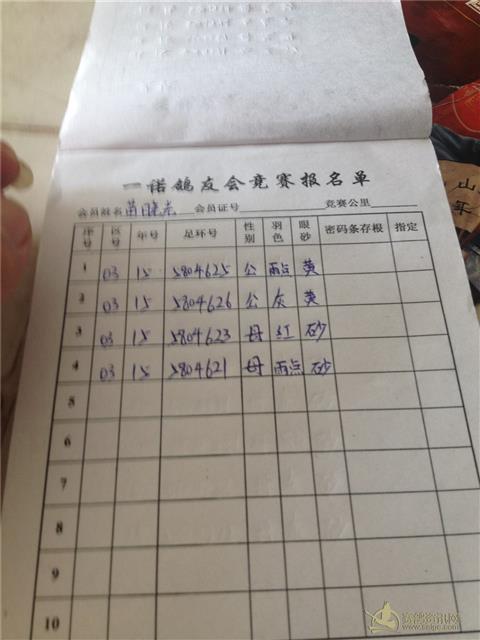 一诺鸽友会竞赛报名单
会员姓名 会员证号 竞赛公里
序号 区号 年号 足环号 性别 羽色 眼砂 密码条存根 指定
1 03 15 5804625 公 雨点 黄
2 03 15 5804626 公 灰 黄
3 03 15 5804623 母 红 砂
4 03 15 5804621 母 雨点 砂
5
6
7
8
9
10
山
年